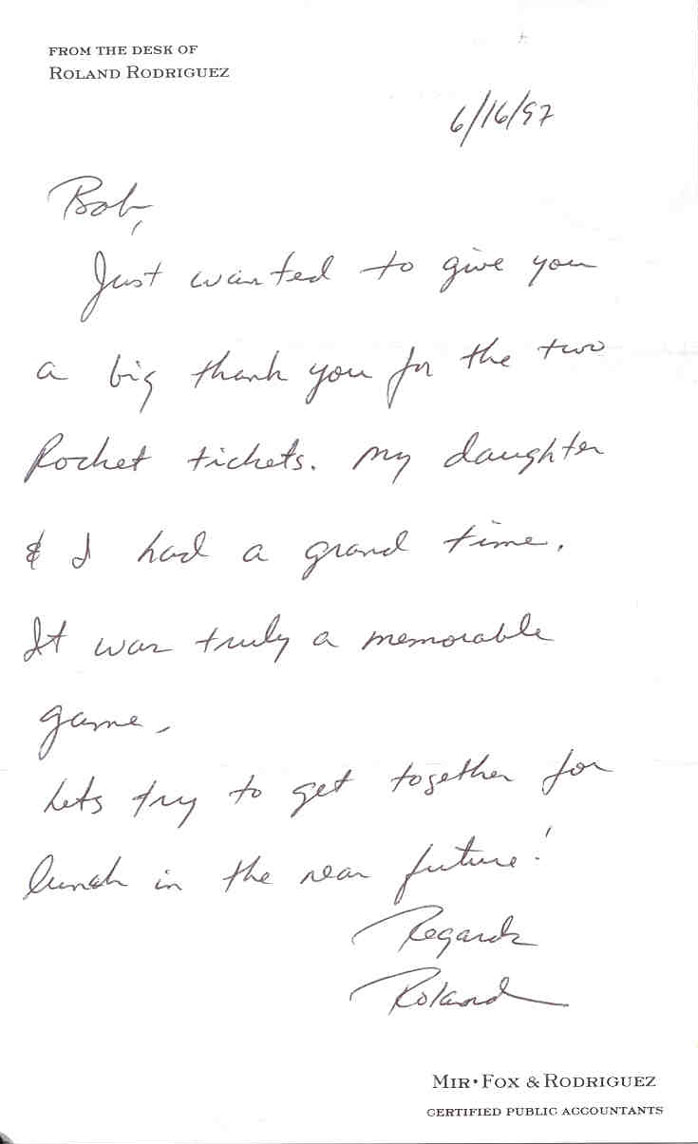 FROM THE DESK OF
ROLAND RODRIGUEZ
6/16/97
Bob,
Just wanted to give you
a big thank you for the two
Rocket tickets. My daughter
& I had a grand time.
It was truly a memorable
game.
Lets try to get together for
lunch in the near future!
Regards
Roland
MIR•FOX & RODRIGUEZ
CERTIFIED PUBLIC ACCOUNTANTS